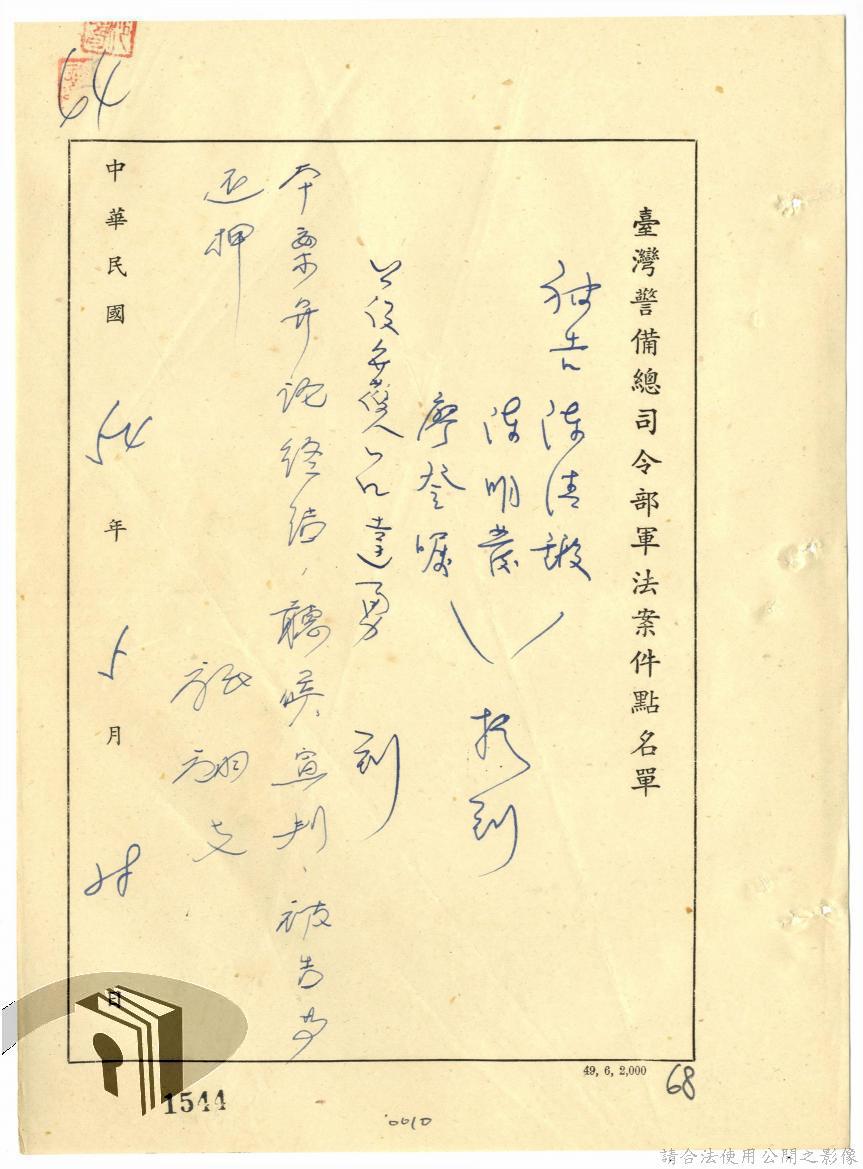 臺灣警備總司令部軍法案件點名單
被告 陳清鍛
陳明發
廖登
到
公設辯護人 呂達勇 到
本案辯論終結,聽候宣判、被告等
還押
中華民國 54 年 5 月 日
64
49, 6, 2,000
68
1544
0010
請合法使用公開之影像